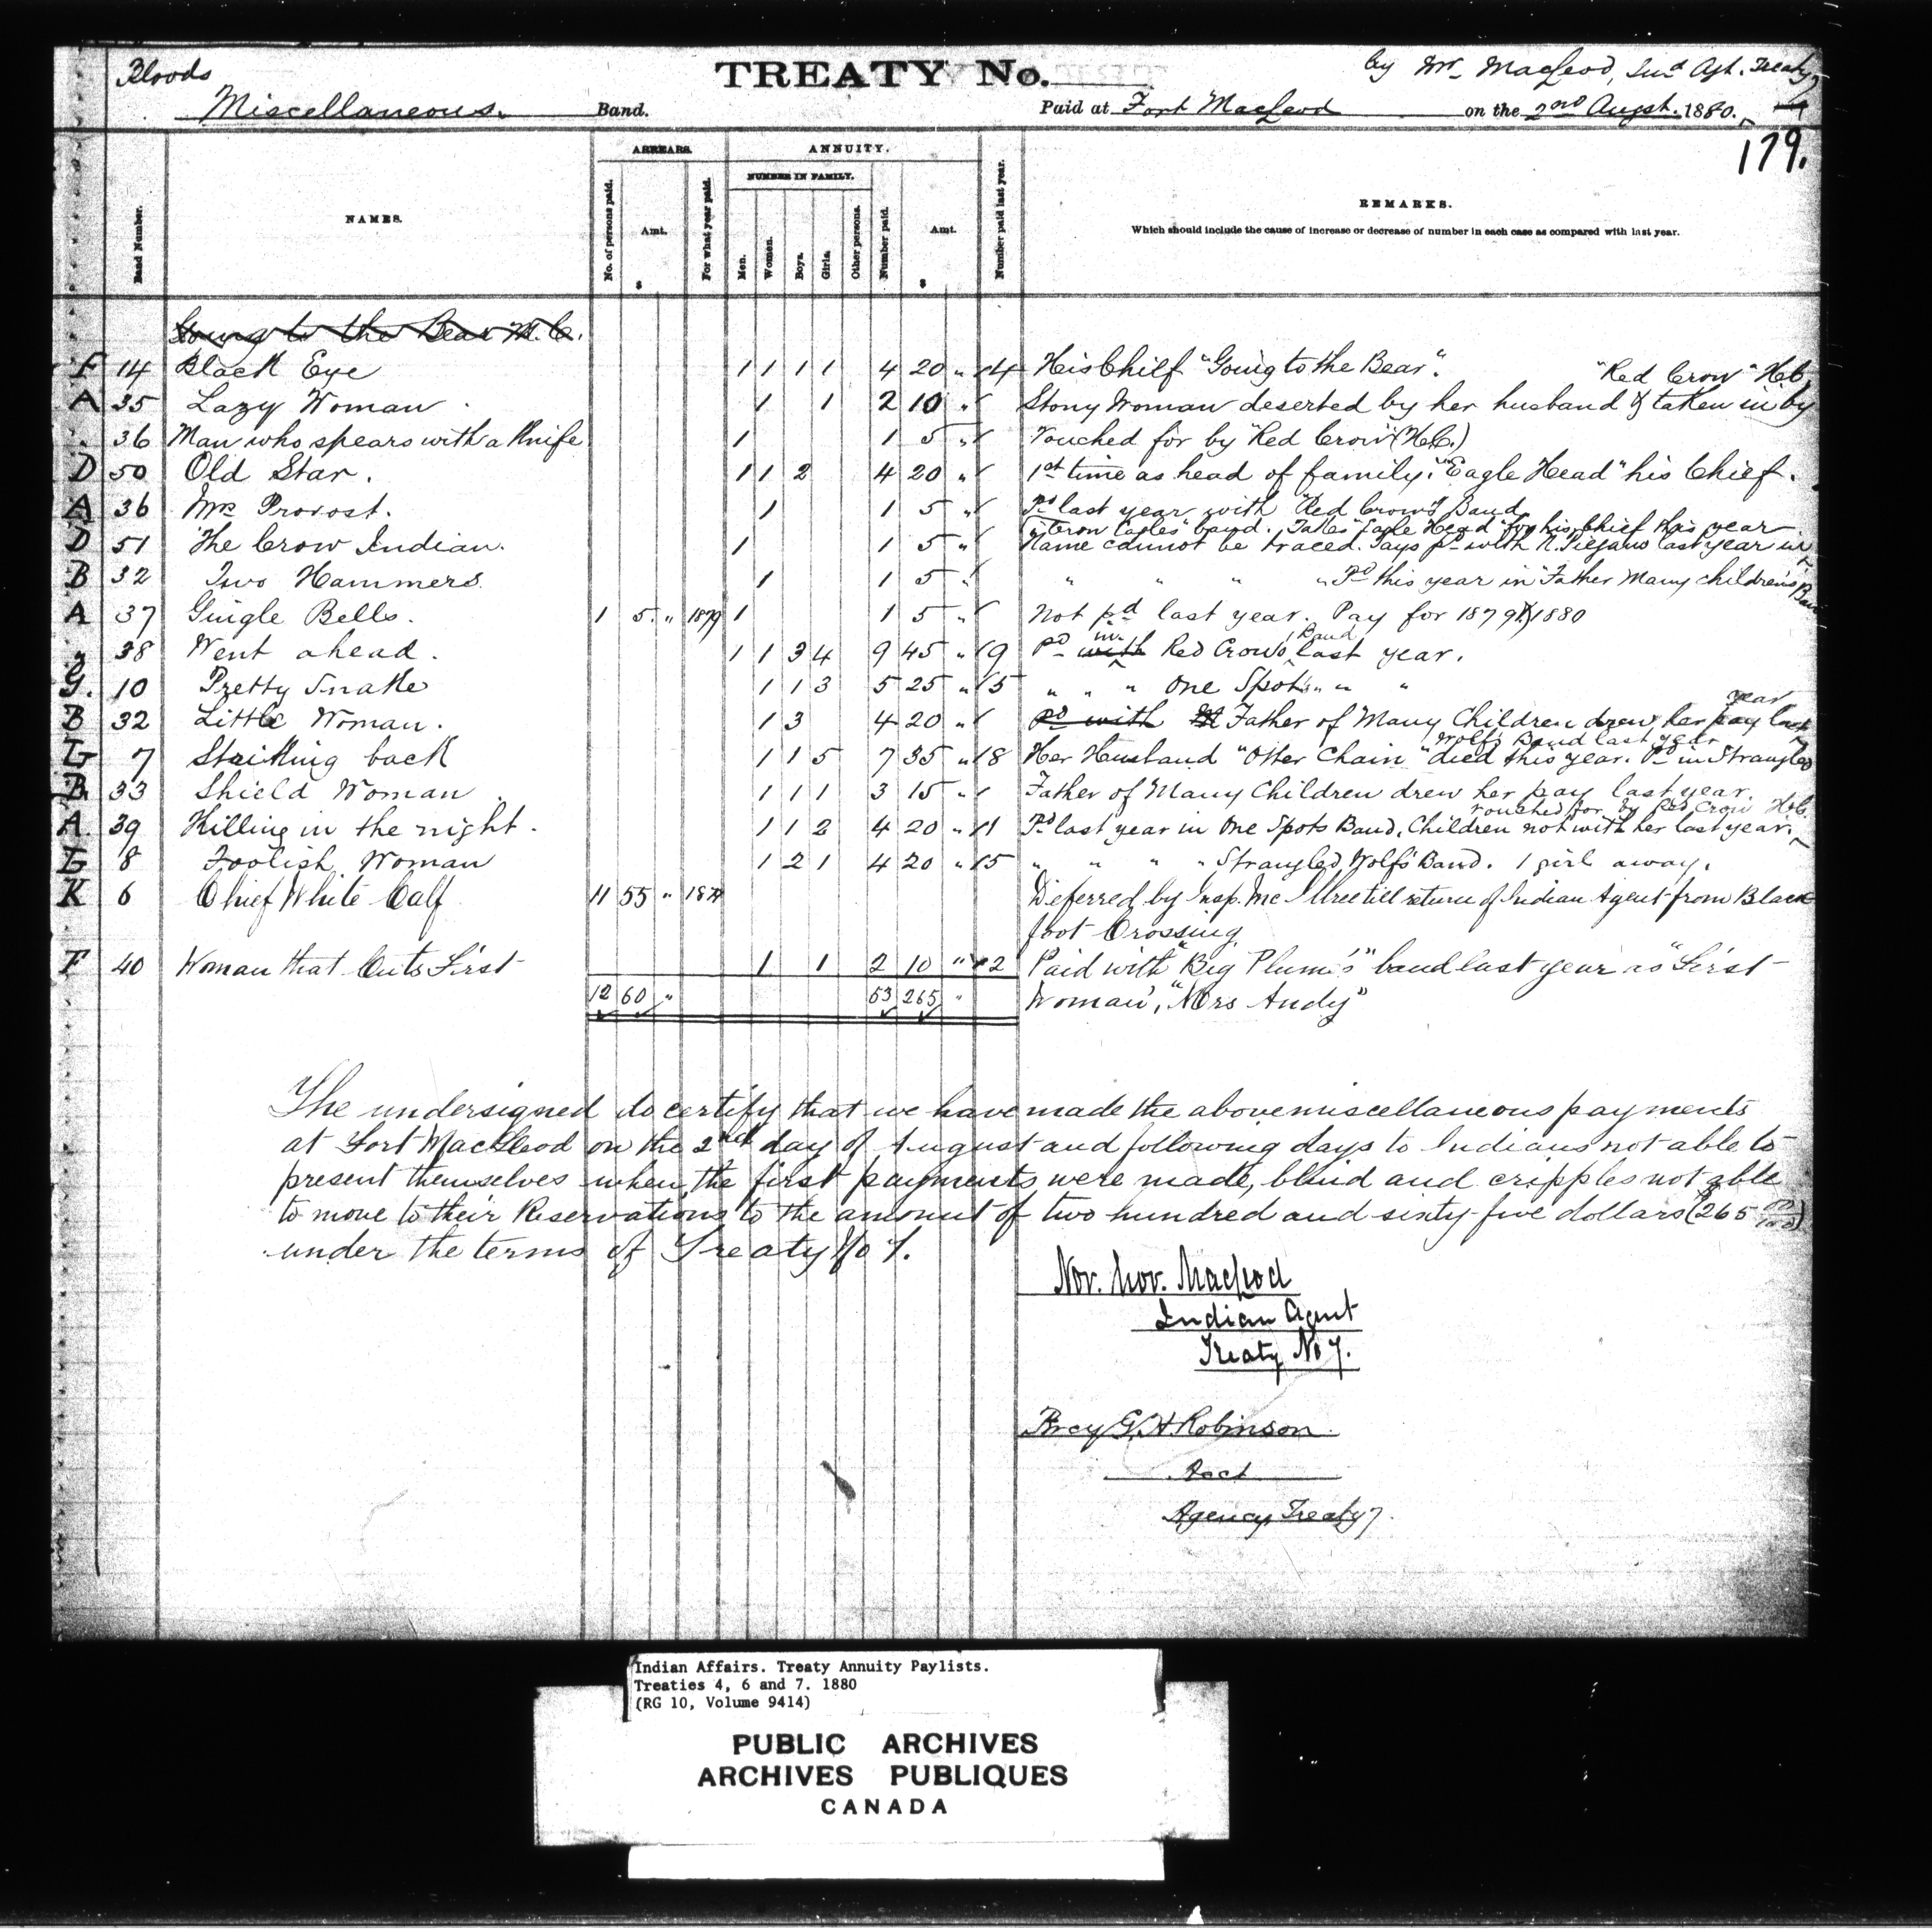 Bloods
TREATY No.
by Mr. MacLeod, Ind. Agt. Treaty 7
Miscellaneous. Band.
Paid at Fort MacLeod on the 2nd Augst. 1880.
179.
Band Number.
NAMES.
ARREARS.
No. of persons paid.
Amt.
$
For what year paid.
ANNUITY.
NUMBER IN FAMILY.
Men.
Women.
Boys.
Girls.
Other persons.
Number paid.
Amt.
$
Number paid last year.
REMARKS.
Which should include the cause of increase or decrease of number in each case as compared with last year.
Going to the Bear M.C.
F 14 Black Eye 1 1 1 1 4 20 " 4 His Chief "Going to the Bear". "Red Crow" H.C.
A 35 Lazy Woman 1 1 2 10 " Stony Woman deserted by her husband & taken in by
" 36 Man who spears with a Knife 1 1 5 " Vouched for by "Red Crow" (H.C.)
D 50 Old Star. 1 1 2 4 20 " 1st time as head of family. "Eagle Head" his Chief.
A 36 Mrs Provost. 1 1 5 " Pd last year with "Red Crow's" Band
Eagles" band. Takes "Eagle Head" for his Chief this year
D 51 The Crow Indian. 1 1 5 " Name cannot be traced. Says pd with N. Piegans last year in
B 32 Two Hammers 1 1 5 " " " " " Pd this year in "Father Many children's Band
A 37 Gingle Bells. 1 5 " 1879 1 1 5 " Not pd last year. Pay for 1879 & 1880
" 38 Went ahead. 1 1 3 4 9 45 " 9 Pd with in Red Crows Band last year.
G. 10 Pretty Snake 1 1 3 5 25 " 5 " " " One Spot's " " "
B 32 Little Woman. 1 3 4 20 " pd with Father of Many Children drew her pay last year
Wolf's Band last year
L 7 Striking back 1 1 5 7 35 " 8 Her Husband "Otter Chain" died this year. Pd in Strangled
B 33 Shield Woman 1 1 1 3 15 " Father of Many Children drew her pay last year.
vouched for by Red Crow H.C.
A. 39 Killing in the night. 1 1 2 4 20 " 1 Pd last year in One Spots Band. Children not with her last year.
L 8 Foolish Woman 1 2 1 4 20 " 5 " " " " Strangled Wolf's Band. 1 girl away.
K 6 Chief White Calf 11 55 " 1879 Deferred by Insp. McIllree till return of Indian Agent from Black
foot Crossing
F 40 Woman that Cuts First 1 1 2 10 " 2 Paid with "Big Plume's" band last year as "First
12 60 " 53 265 " Woman", "Mrs Andy"
The undersigned do certify that we have made the above miscellaneous payments
at Fort MacLeod on the 2nd day of August and following days to Indians not able to
present themselves when the first payments were made, blind and cripples not able
to move to their Reservations to the amount of two hundred and sixty-five dollars (265 00/100)
under the terms of Treaty No 7.
Nor. Nor. Macleod
Indian Agent
Treaty No 7.
Percy G. H. Robinson
Acct
Agency, Treaty 7.
Indian Affairs. Treaty Annuity Paylists.
Treaties 4, 6 and 7. 1880
(RG 10, Volume 9414)
PUBLIC ARCHIVES
ARCHIVES PUBLIQUES
CANADA